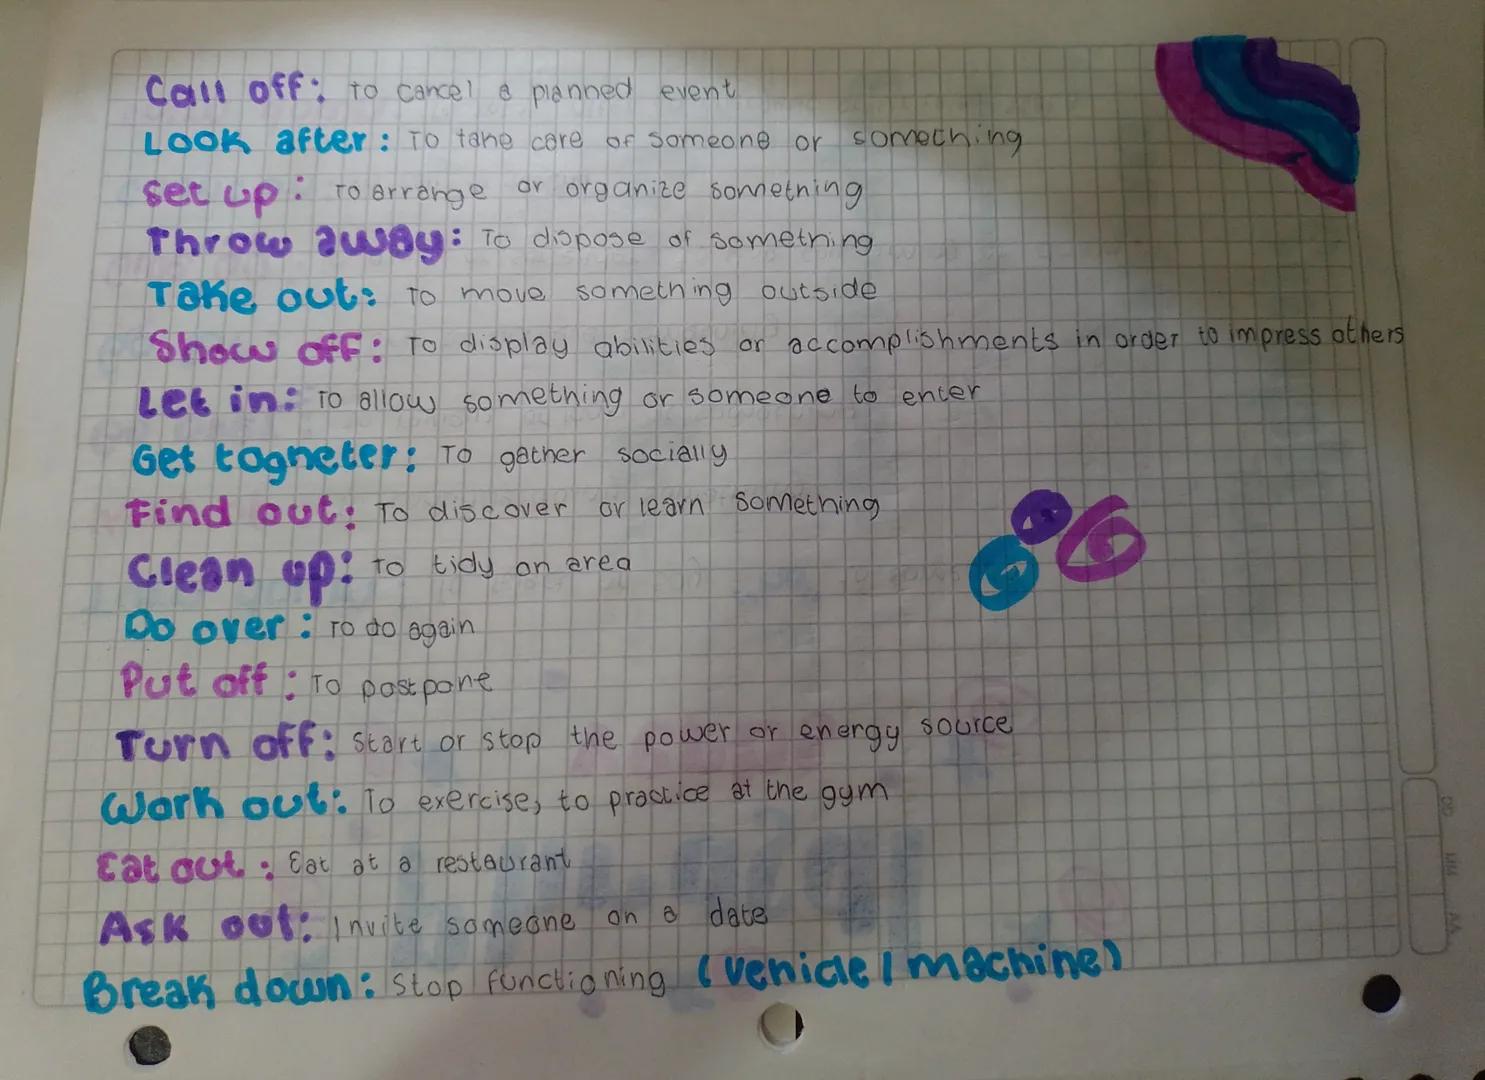 Call off: To cancel a planned event
Look after: To take care of someone or something
Set up: To arrange or organize something
Throw away: To dispose of something
Take out: To move something outside
Show off: To display abilities or accomplishments in order to impress others
Let in: To allow something or someone to enter
Get togheter: To gather socially
Find out: To discover or learn something
Clean up: To tidy an area
Do over: To do again
Put off: To postpone
Turn off: Start or stop the power or energy source
Work out: To exercise, to practice at the gym
Eat out: Eat at a restaurant
Ask out: Invite someone on a date
Break down: Stop functioning (vehicle / machine)